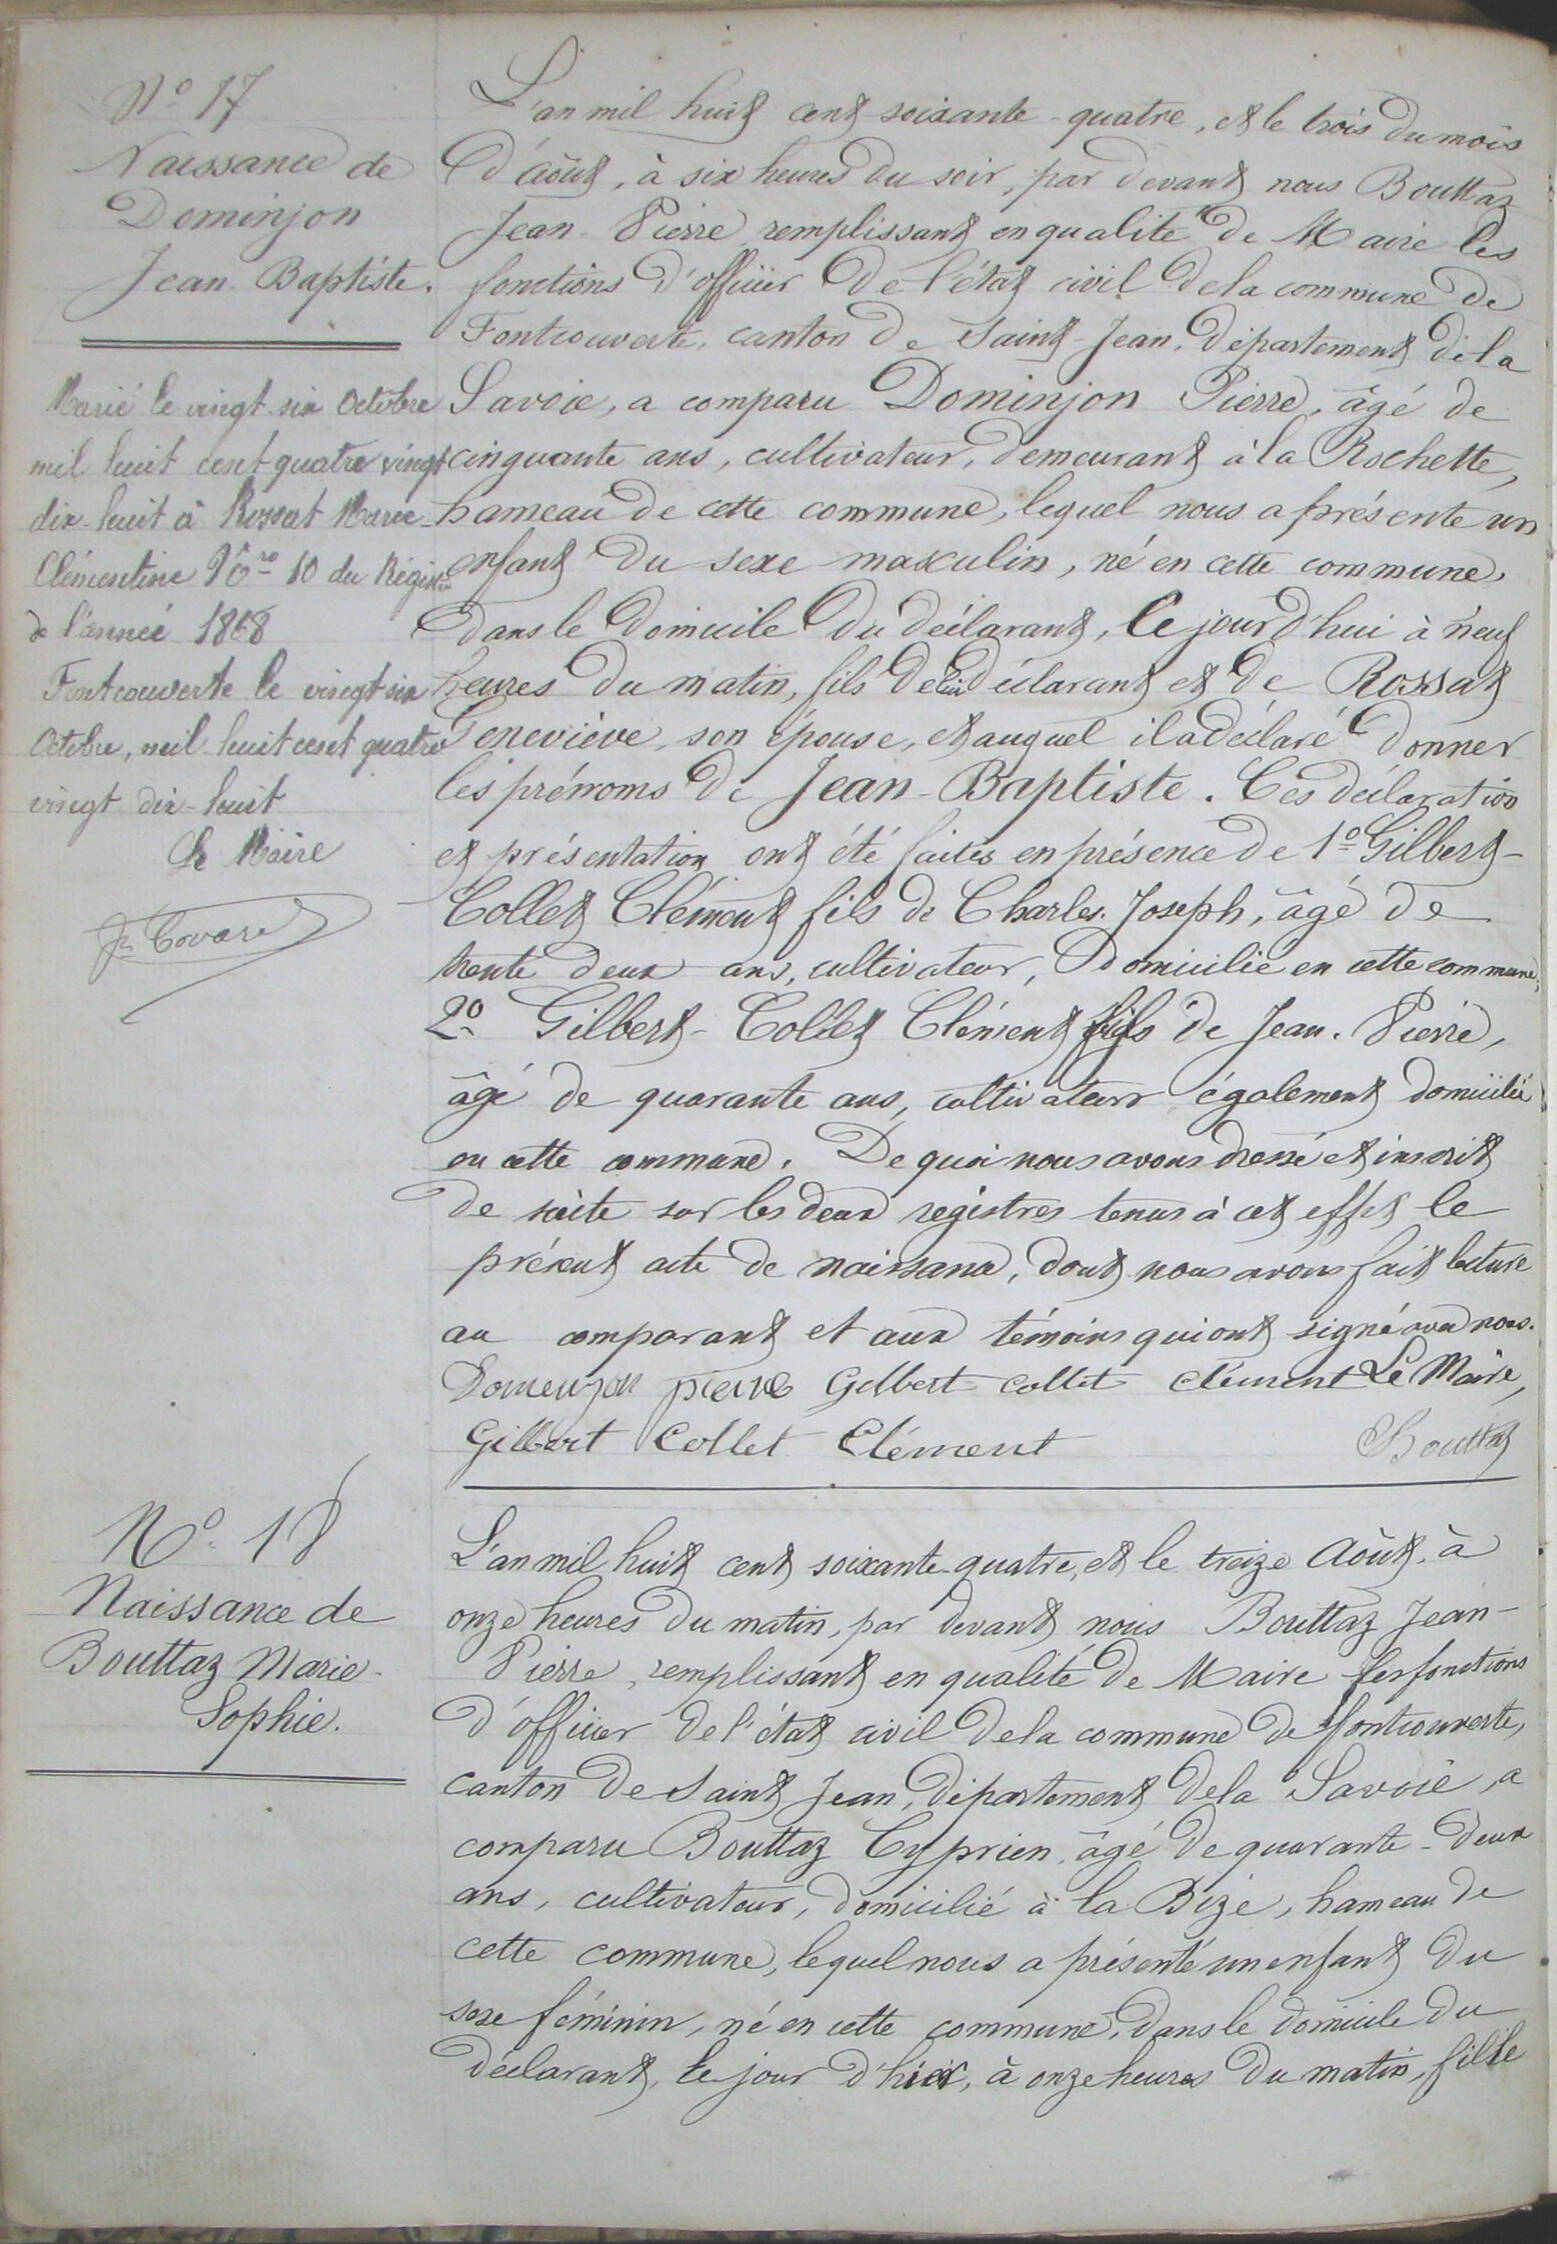 Nº 17
Naissance de
Dominjon
Jean Baptiste.
Marié le vingt six Octobre
mil huit cent quatre vingt
dix-huit à Rossat Marie
Clémentine Nº 10 du Registre
de l'année 1868
Fontcouverte le vingt six
Octobre, mil huit cent quatre
vingt dix-huit
Le Maire
L'an mil huit cent soixante-quatre, et le trois du mois
d'août, à six heures du soir, par devant nous Bouttaz
Jean Pierre remplissant en qualité de Maire les
fonctions d'officier de l'état civil de la commune de
Fontcouverte, canton de Saint-Jean, département de la
Savoie, a comparu Dominjon Pierre, âgé de
cinquante ans, cultivateur, demeurant à la Rochette,
hameau de cette commune, lequel nous a présenté un
enfant du sexe masculin, né en cette commune,
dans le domicile du déclarant, ce jourd'hui à neuf
heures du matin, fils de lui déclarant et de Rossat
Geneviève, son épouse, et auquel il a déclaré donner
les prénoms de Jean-Baptiste. Ces déclaration
et présentation ont été faites en présence de 1º Gilbert-
Collet Clément fils de Charles Joseph, âgé de
trente deux ans, cultivateur, domicilié en cette commune;
2º Gilbert-Collet Clément fils de Jean-Pierre,
âgé de quarante ans, cultivateur également domicilié
en cette commune. De quoi nous avons dressé et inscrit
de suite sur les deux registres tenus à cet effet le
présent acte de naissance, dont nous avons fait lecture
au comparant et aux témoins qui ont signé avec nous.
Domenjon pierre Gilbert collet clément Le Maire,
Gilbert Collet Clément Bouttaz
Nº 18
Naissance de
Bouttaz Marie-
Sophie.
L'an mil huit cent soixante-quatre, et le treize Août, à
onze heures du matin, par devant nous Bouttaz Jean-
Pierre, remplissant en qualité de Maire les fonctions
d'officier de l'état civil de la commune de fontcouverte,
canton de Saint Jean, département de la Savoie, a
comparu Bouttaz Cyprien, âgé de quarante-deux
ans, cultivateur, domicilié à la Bize, hameau de
cette commune, lequel nous a présenté un enfant du
sexe féminin, né en cette commune, dans le domicile du
déclarant, le jour d'hier, à onze heures du matin, fille